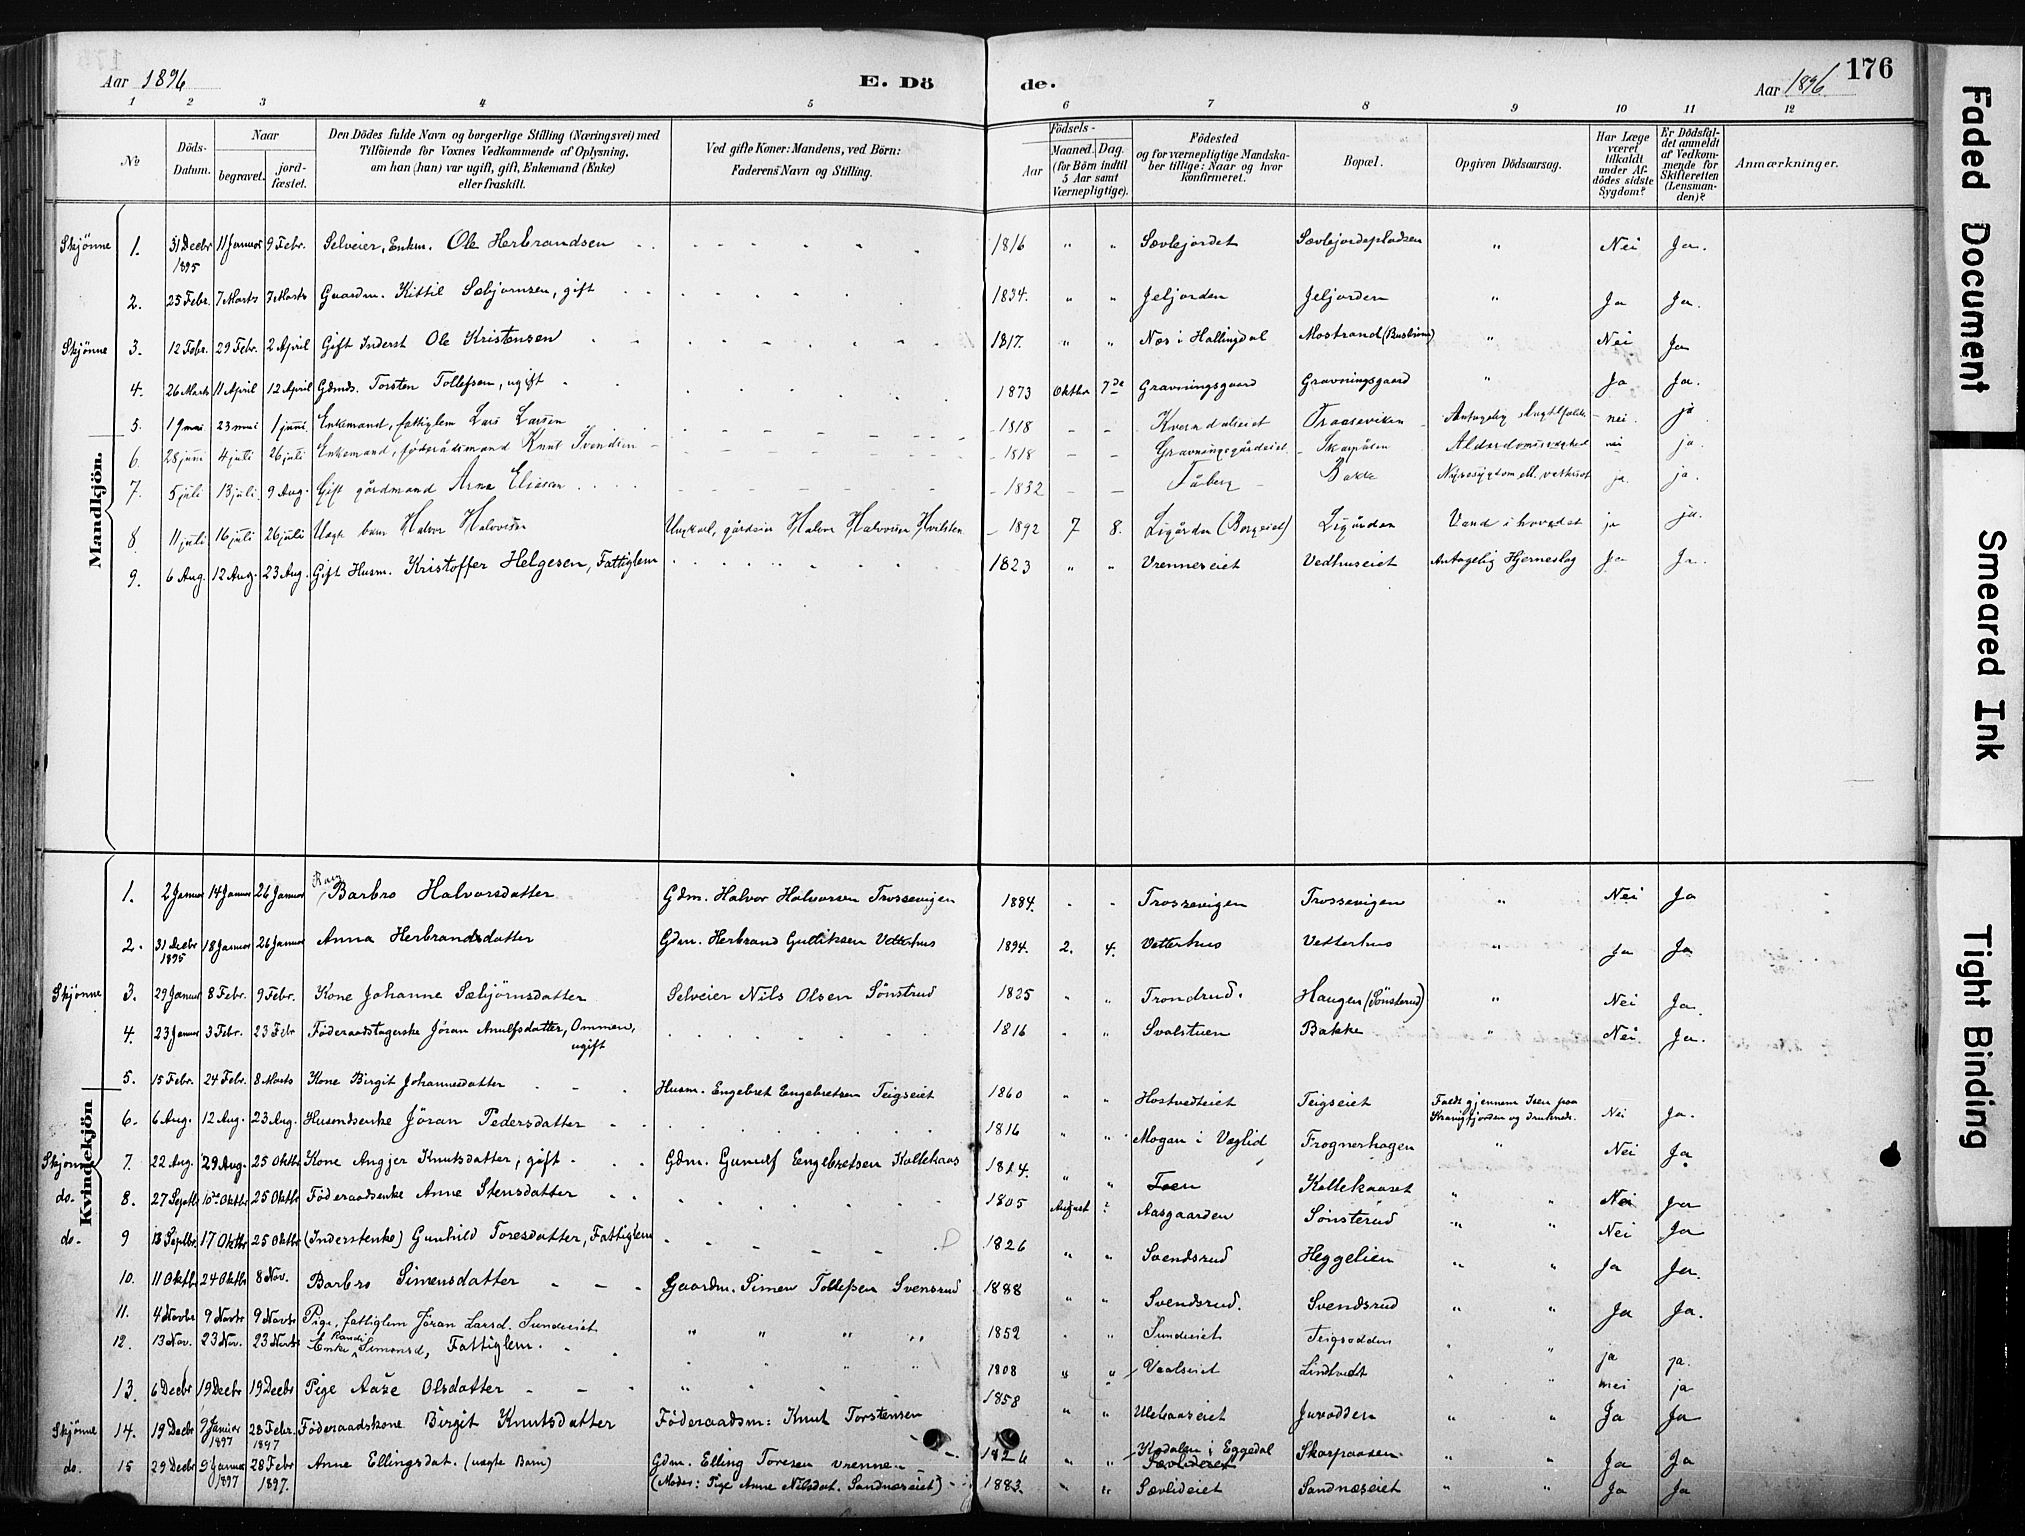 Aar 1896
E. Dö
de.
Aar 1896
176
1 2 3 4 5 6 7 8 9 10 11 12
No
Döds-Datum.
Naar
begravet.
jord-fæstet.
Den Dödes fulde Navn og borgerlige Stilling (Næringsvei) med
Tilföiende for Voxnes Vedkommende af Oplysning,
om han (hun) var ugift, gift, Enkemand (Enke)
eller fraskilt.
Ved gifte Koner: Mandens, ved Börn:
Faderens Navn og Stilling.
Födsels-
Aar
Maaned. Dag.
(for Börn indtil
5 Aar samt
Værnepligtige).
Födested
og for værnepligtige Mandska-
ber tillige: Naar og hvor
konfirmeret.
Bopæl.
Opgiven Dödsaarsag.
Har Læge
været
tilkaldt
under Af-
dödes sidste
Sygdom?
Er Dödsfal-
det anmeldt
af Vedkom-
mende for
Skifteretten
(Lensman-
den)?
Anmærkninger.
Mandkjön.
Skjønne 1. 31 Decbr 1895 11 Januar 9 Febr. Selveier, Enkm. Ole Herbrandsen 1816 " " Sævlejordet Sævlejordepladsen " Nei Ja.
2. 25 Febr. 7 Marts 7 Marts Gaardm. Kittil Sæbjørnsen, gift 1834. " " Jeljorden Jeljorden " Ja Ja.
Skjønne 3. 12 Febr. 29 Febr. 2 April Gift Inderst Ole Kristensen 1817. " " Næs i Hallingdal Mostrand " Nei Ja
4. 26 Marts 11 April 12 April Gdmds. Torsten Tollefsen, ugift 1873 Oktbr 7de Gravningsgaard Gravningsgaard " Ja Ja.
5. 19 mai 23 mai 1 juni Enkemand, fattiglem Lars Larsen 1818 Traaseviken Antagelig nei. ja
6. 28 juni 4 juli 26 juli Enkemand, føderådsmand Knut Svendsen 1818 Gravningsgårdeiet Skarpåsen nei ja.
7. 5 juli 13 juli 9 Aug. Gift gårdmand Arne Eliasen 1832 Fåberg Bakke ja. ja.
8 11 juli 16 juli 26 juli Uægte barn Halvor Halvorsen Ungkarl, gårdsøn Halvor Halvorsen Kvilsten 1892 7 8. Ligården Ligården Vand i hovedet ja ja.
9. 6 Aug. 12 Aug. 23 Aug. Gift Husm. Kristoffer Helgesen, Fattiglem 1823 " " Vrenneseiet Vedhuseiet Antagelig Hjerneslag Ja Ja.
Kvindekjön
1. 2 Januar 14 Januar 26 Januar Barbro Halvorsdatter Gdm. Halvor Halvorsen Trossevigen 1884. Trossevigen Trossevigen " Nei Ja
2. 31 Decbr 1895 18 Januar 26 Januar Anna Herbrandsdatter Gdm. Herbrand Gulliksen Vetterhus 1894. 2. 4. Vetterhus Vetterhus " Ja Ja
Skjønne 3. 29 Januar 8 Febr. 9 Febr. Kone Johanne Sæbjørnsdatter Selveier Nils Olsen Sønstrud 1825 " " Trondrud. Haugen (Sønsterud) " Nei Ja.
4. 23 Januar 3 Febr. 23 Febr Føderaadstagerske Jöran Anulfsdatter, Ommen, ugift 1816 " " Svalstuen Bakke " Nei. Ja.
5. 15 Febr. 24 Febr. 8 Marts Kone Birgit Johannesdatter Husm. Engebret Engebretsen Teigseiet 1860 " " Hostvedteiet Teigseiet Faldt gjennem Isen paa Kravigfjorden og druknede. Nei Ja.
6. 6 Aug. 12 Aug. 23 Aug. Husmdsenke Jöran Pedersdatter 1816 " " Mogan i Væglid Frognerhagen " Nei Ja
Skjønne 7. 22 Aug. 29 Aug. 25 Oktbr Kone Angjer Knutsdatter, gift Gdm. Gunulf Engebretsen Kollekaas " " Foen Kollekaaset " " Nei Ja
do. 8. 27 Septbr 10de Oktbr 25 Oktbr Föderaadsenke Anne Stensdatter 1805 August ? Aasgaarden Sønsterud " " Nei Ja
do. 9 13 Septbr. 17 Oktbr 25 Oktbr (Inderstenke) Gunhild Toresdatter, Fattiglem 1826 " " Svendsrud Heggelien " " Ja Ja.
10. 11 Oktbr 24 Oktbr 8 Nov. Barbro Simensdatter Gaardm. Simen Tollefsen Svensrud 1888 " " Svendsrud. Svendsrud " " Ja Ja.
11. 4 Novbr 9 Novbr 9 Novbr Pige, fattiglem Jöran Larsd. Sundeeiet " " " " 1852 " " Sundeeiet Teigsodden " " ja ja.
12. 13 Nov. 23 Nov. 23 Novbr Enke Randi Simonsd, Fattiglem. 1808 " " Vaalseiet Lindtvedt " " nei ja
13. 6 Decbr 19 Decbr 19 Decbr Pige Aase Olsdatter 1858 " " Juvodden " " Ja Ja
Skjønne 14. 19 Decbr 9 Januar 1897 28 Febr. 1897 Föderaadskone Birgit Knutsdatter Föderaadsm: Knut Torstensen 1826 " " Kodalen i Eggedal Skarpaasen " " Ja Ja
do. 15 29 Decbr 9 Januar 1897 28 Febr 1897. Anne Ellingsdat. (uægte Barn) Gdm. Elling Toresen Vrennen (Moder: Pige Anne Nilsdat. Sandnæseiet) 1883. " " Sævlideiet Sandnæseiet " " Ja Ja
Faded Document
Smeared Ink
Tight Binding